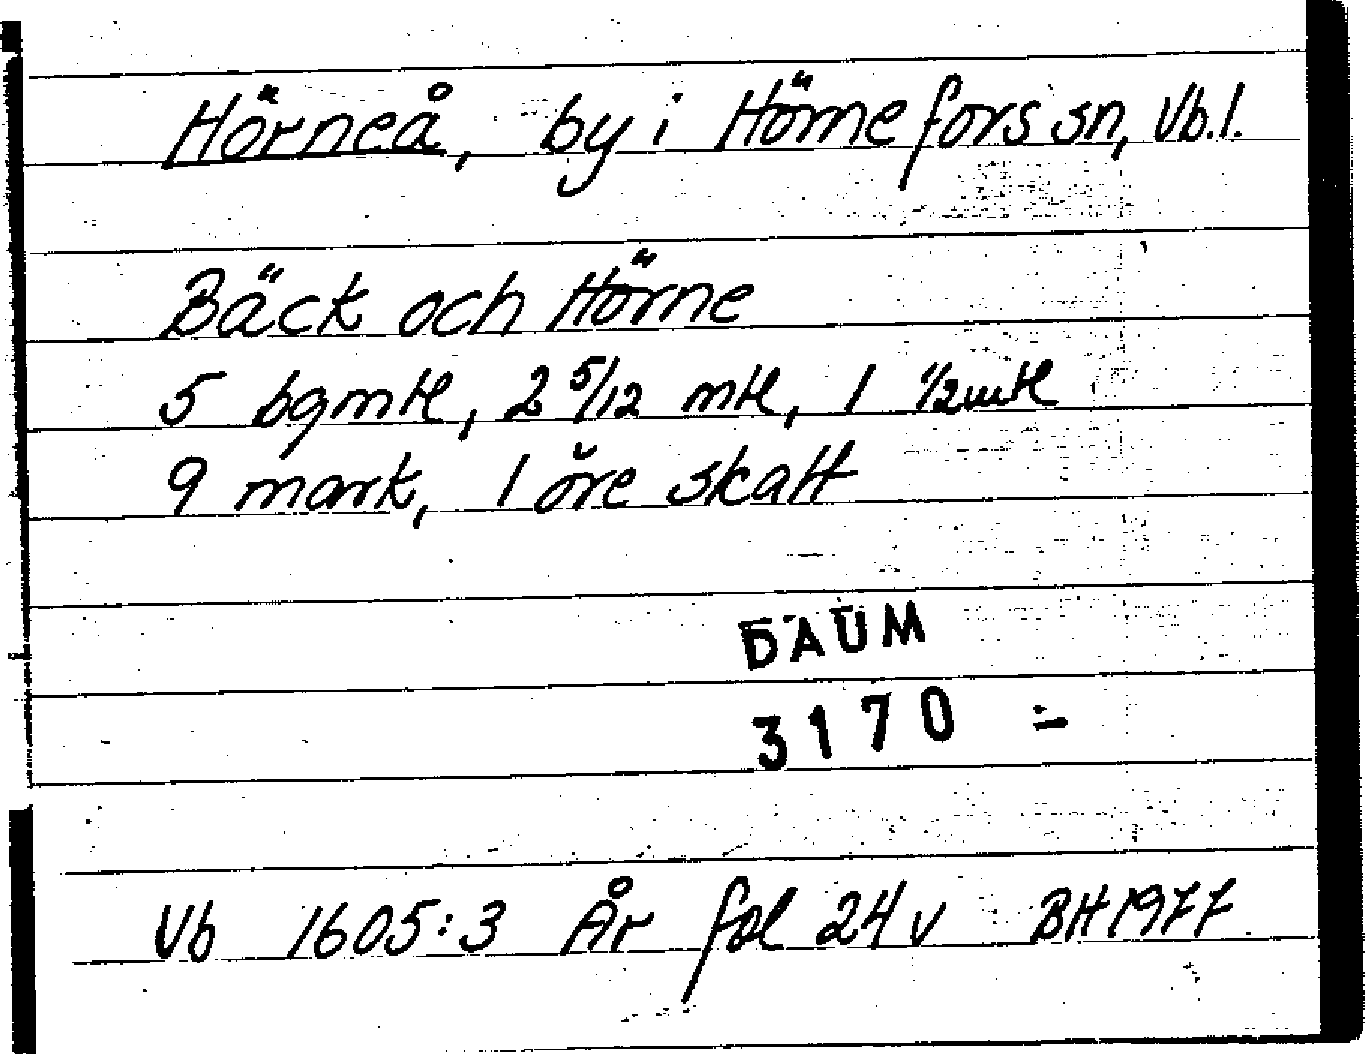 Hörneå, by i Hörnefors sn, Vb.l.
Bäck och Hörne
5 bgmtl, 2 5/12 mtl, 1 1/2 mtl
9 mark, 1 öre skatt
DAUM
3170 =
Vb 1605:3 År fol 24 v BH 1977